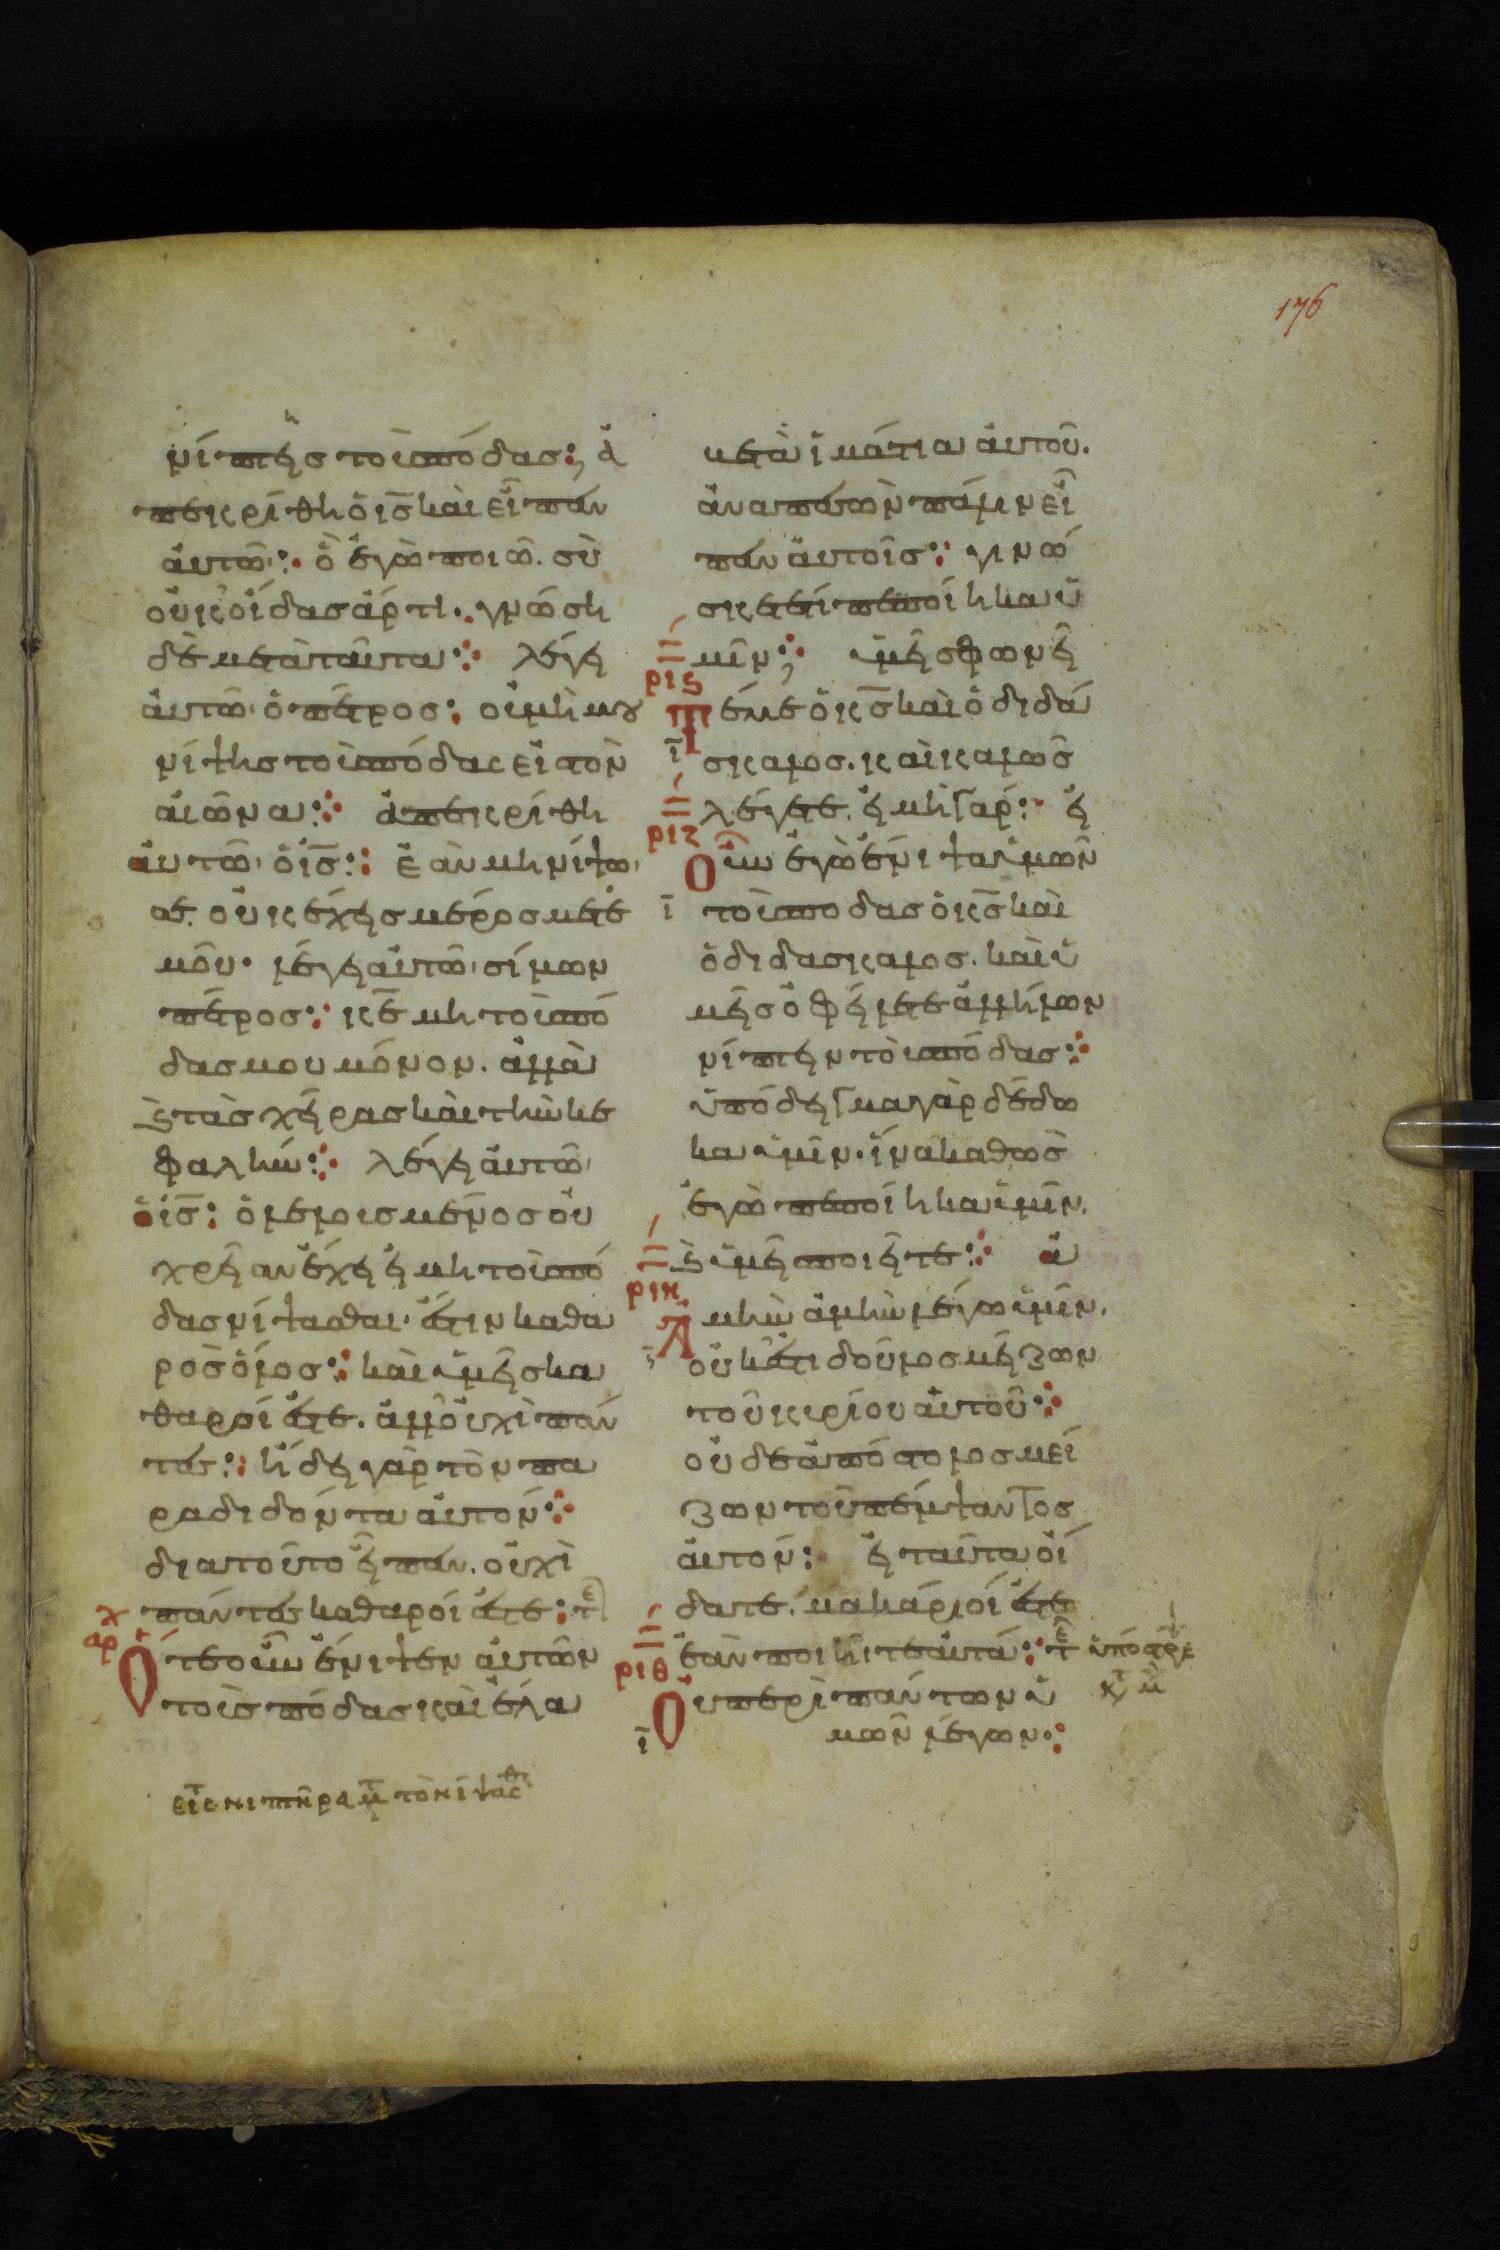 176
νίπτεις τοὺσ πόδασ; ἀ
πεκρίθη ὁ ισ̅ καὶ εἶπεν
αὐτῶ· ὃ ἐγὼ ποιῶ. σὺ
οὐκ οἶδασ ἄρτι. γνώση
δὲ μετὰ ταῦτα· λέγει
αὐτῶ· ὁ πέτροσ· οὐ μὴ μου
νίψησ τοὺσ πόδασ εἰσ τὸν
αἰῶνα· ἀπεκρίθη
αὐτῶ· ὁ ισ̅· ἐὰν μὴ νίψω
σε. οὐκ ἔχεισ μέροσ μετ ἐ
μοῦ· λέγει αὐτῶ· σίμων
πέτροσ· κε̅ μὴ τοὺσ πό
δασ μου μόνον. ἀλλὰ
ϗ τὰσ χεῖρασ καὶ τὴν κε
φαλήν· λέγει αὐτῶ·
ὁ ισ̅· ὁ λελουσμένοσ οὐ
χρείαν ἔχει εἰ μὴ τοὺσ πό
δασ νίψασθαι· ἔστιν καθα
ρὸσ ὅλοσ· καὶ ὑμεῖσ κα
θαροί ἐστε. ἀλλ οὐχὶ πάν
τεσ· ἤδει γὰρ τὸν πα
ραδιδόντα αὐτόν·
διατοῦτο εἶπεν. οὐχὶ
πάντεσ καθαροί ἐστε· τε̅
αρχ
Ὅτε οὖν ἔνιψεν αὐτῶν
τοὺσ πόδασ καὶ ἔλα
εἰς τ νιπτῆρα μτ τὸ νίψασθ
με τὰ ἱμάτια αὐτοῦ.
ἀναπεσὼν πάλιν εἶ
πεν αὐτοῖσ· γινώ
σκετε τί πεποίηκα ὑ
μῖν; ὑμεῖσ φωνεῖ
ριϛ
τέ με ὁ κσ̅ καὶ ὁ διδά
ι̅
σκαλοσ. καὶ καλῶσ
λέγετε. εἰμὶ γάρ· εἰ
ριζ
Οὖν ἐγὼ ἔνιψα ὑμῶν
ι̅
τοὺσ ποδασ ὁ κσ̅ καὶ
ὁ διδασκαλοσ. καὶ ὑ
μεῖσ ὀφείλετε ἀλλήλων
νίπτειν τοὺσ πόδασ·
ὑπόδειγμα γὰρ δέδω
κα ὑμῖν. ἵνα καθὼσ
ἐγὼ πεποίηκα ὑμῖν.
ϗ ὑμεῖσ ποιεῖτε· ἀ
ριη
Ἀμὴν ἀμὴν λέγω ὑμῖν.
οὐκ ἔστι δοῦλοσ μείζων
τοῦ κυρίου αὐτοῦ·
οὐδὲ ἀπόστολοσ μεί
ζων τοῦ πέμψαντοσ
αὐτόν· εἰ ταῦτα οἴ
δατε. μακάριοί ἐστε
ἐὰν ποιῆτε αὐτά· τε̅ ὑπόστρε
ριθ
Οὐ περὶ πάντων ὑ
ι̅
μῶν λέγων·